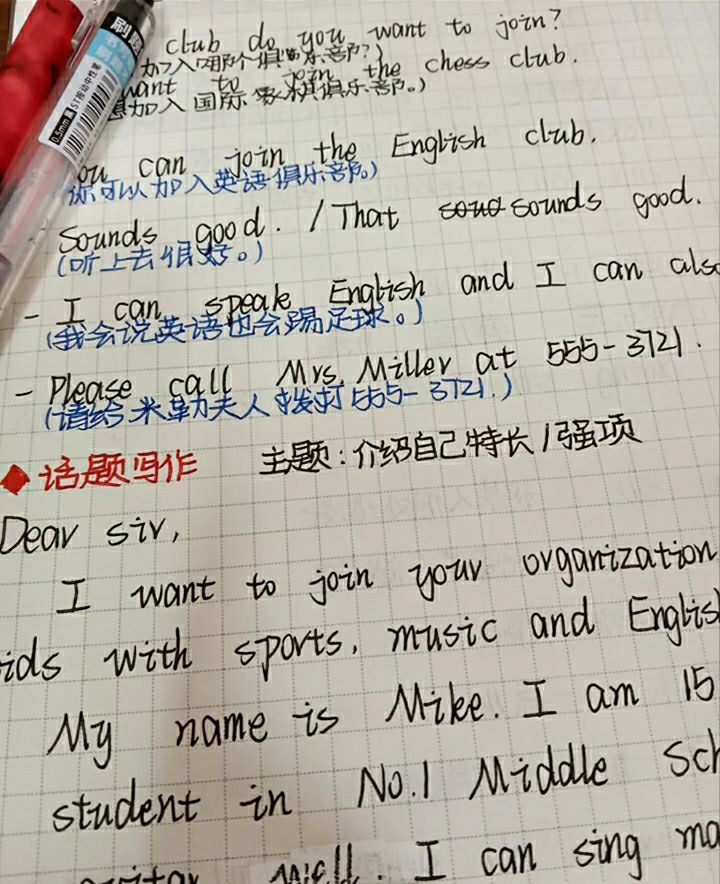 club do you want to join?
加入哪个俱乐部?)
want to join the chess club.
想加入国际象棋俱乐部。)
ou can join the English club.
(你可以加入英语俱乐部。)
- Sounds good. / That soud sounds good.
(听上去很好。)
- I can speak English and I can also
(我会说英语也会踢足球。)
- Please call Mrs Miller at 555-3721.
(请给米勒夫人拨打 555-3721.)
◆ 话题写作 主题:介绍自己特长/强项
Dear sir,
I want to join your organization
ids with sports, music and English
My name is Mike. I am 15
student in No.1 Middle Sch
well. I can sing ma
0.5mm 黑 ST按动中性笔
刷题